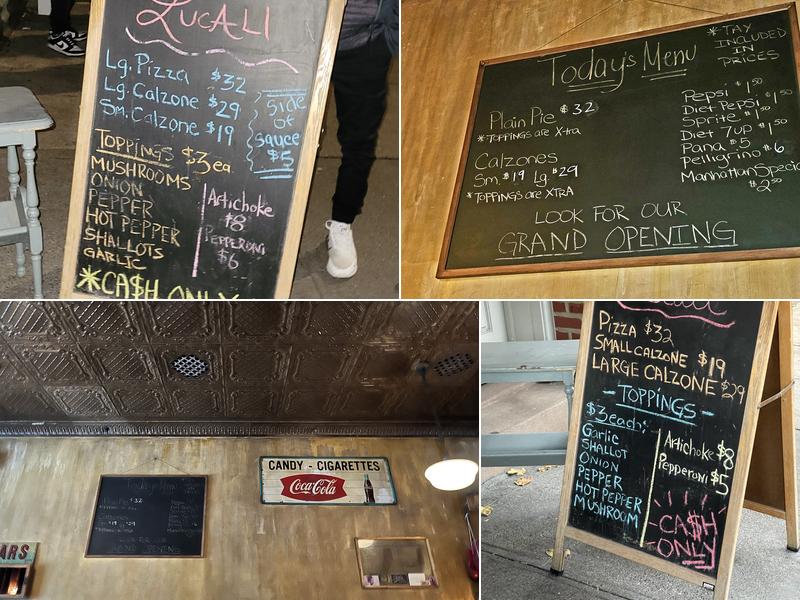 LUCALI
Lg. Pizza $32
Lg. Calzone $29
Sm. Calzone $19
Side
of
sauce
$5
TOPPINGS $3ea
MUSHROOMS
ONION
PEPPER
HOT PEPPER
SHALLOTS
GARLIC
Artichoke
$8
PEPPERONI
$6
*CA$H ONLY
Today's Menu
*TAY
INCLUDED
IN
PRICES
Plain Pie $32
*TOPPINGS are X-tra
Calzones
Sm. $19 Lg. $29
*TOPPINGS are XTRA
Pepsi $1.50
Diet Pepsi $1.50
Sprite $1.50
Diet 7up $1.50
Pana $5
Pellegrino $6
Manhattan Specia
$2.50
LOOK FOR OUR
GRAND OPENING
Today's Menu
$32
LOOK FOR OUR
GRAND OPENING
CANDY - CIGARETTES
Coca-Cola
ARS
PIZZA $32
SMALL CALZONE $19
LARGE CALZONE $29
- TOPPINGS -
$3 each:
Garlic
SHALLOT
ONION
PEPPER
HOT PEPPER
MUSHROOM
Artichoke $8
Pepperoni $5
CA$H
ONLY